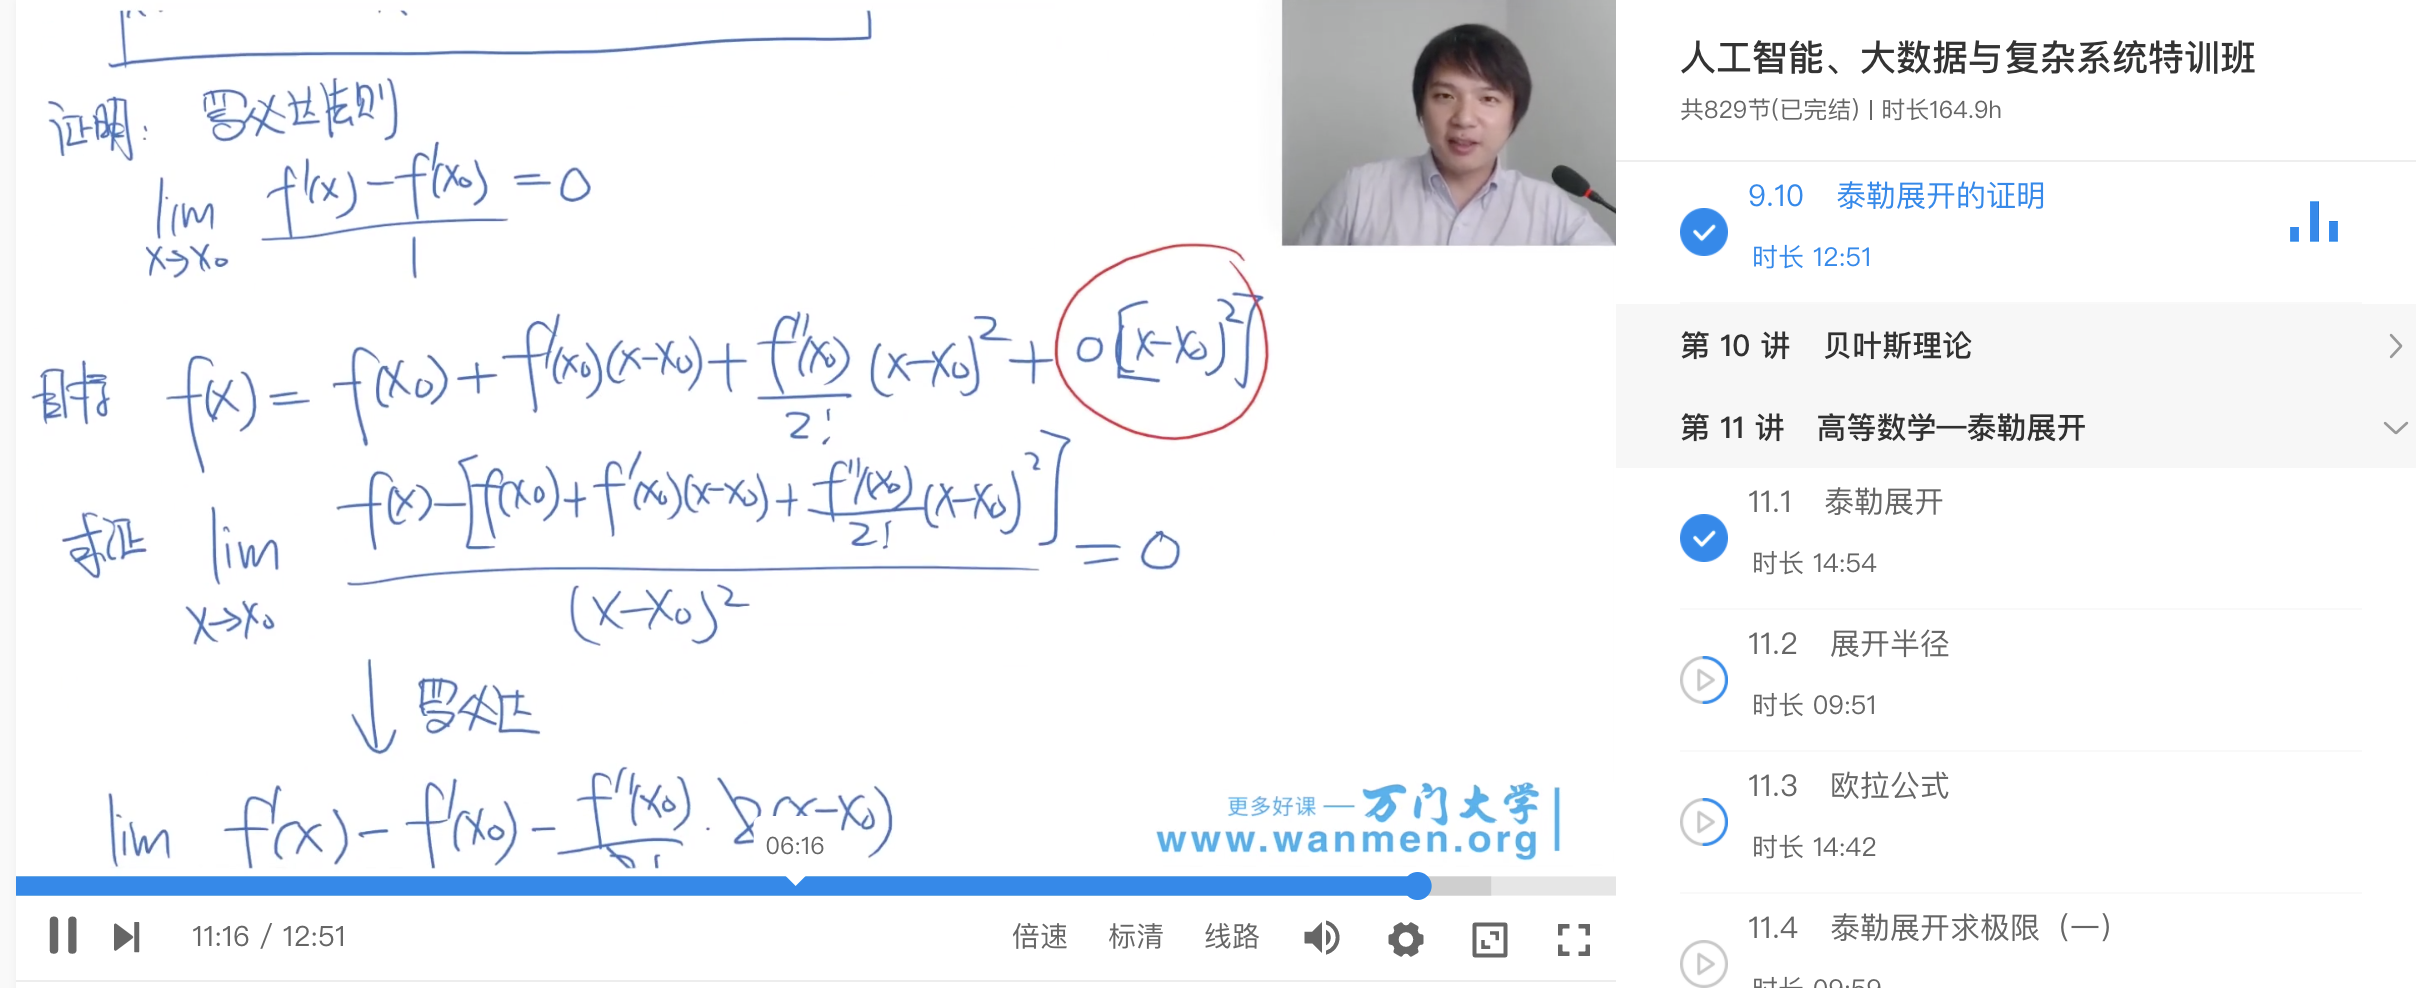 证明: 罗必达法则
lim x→x₀ (f'(x)-f'(x₀))/1 = 0
目标 f(x) = f(x₀) + f'(x₀)(x-x₀) + f''(x₀)/2! (x-x₀)² + o[(x-x₀)²]
求证 lim x→x₀ (f(x)-[f(x₀)+f'(x₀)(x-x₀)+f''(x₀)/2!(x-x₀)²])/(x-x₀)² = 0
↓ 罗必达
lim f'(x) - f'(x₀) - f''(x₀)/2! · 2(x-x₀)
更多好课 — 万门大学
www.wanmen.org
06:16
11:16 / 12:51
倍速 标清 线路
人工智能、大数据与复杂系统特训班
共829节(已完结) | 时长164.9h
9.10 泰勒展开的证明
时长 12:51
第 10 讲 贝叶斯理论
第 11 讲 高等数学—泰勒展开
11.1 泰勒展开
时长 14:54
11.2 展开半径
时长 09:51
11.3 欧拉公式
时长 14:42
11.4 泰勒展开求极限（一）
时长 09:59